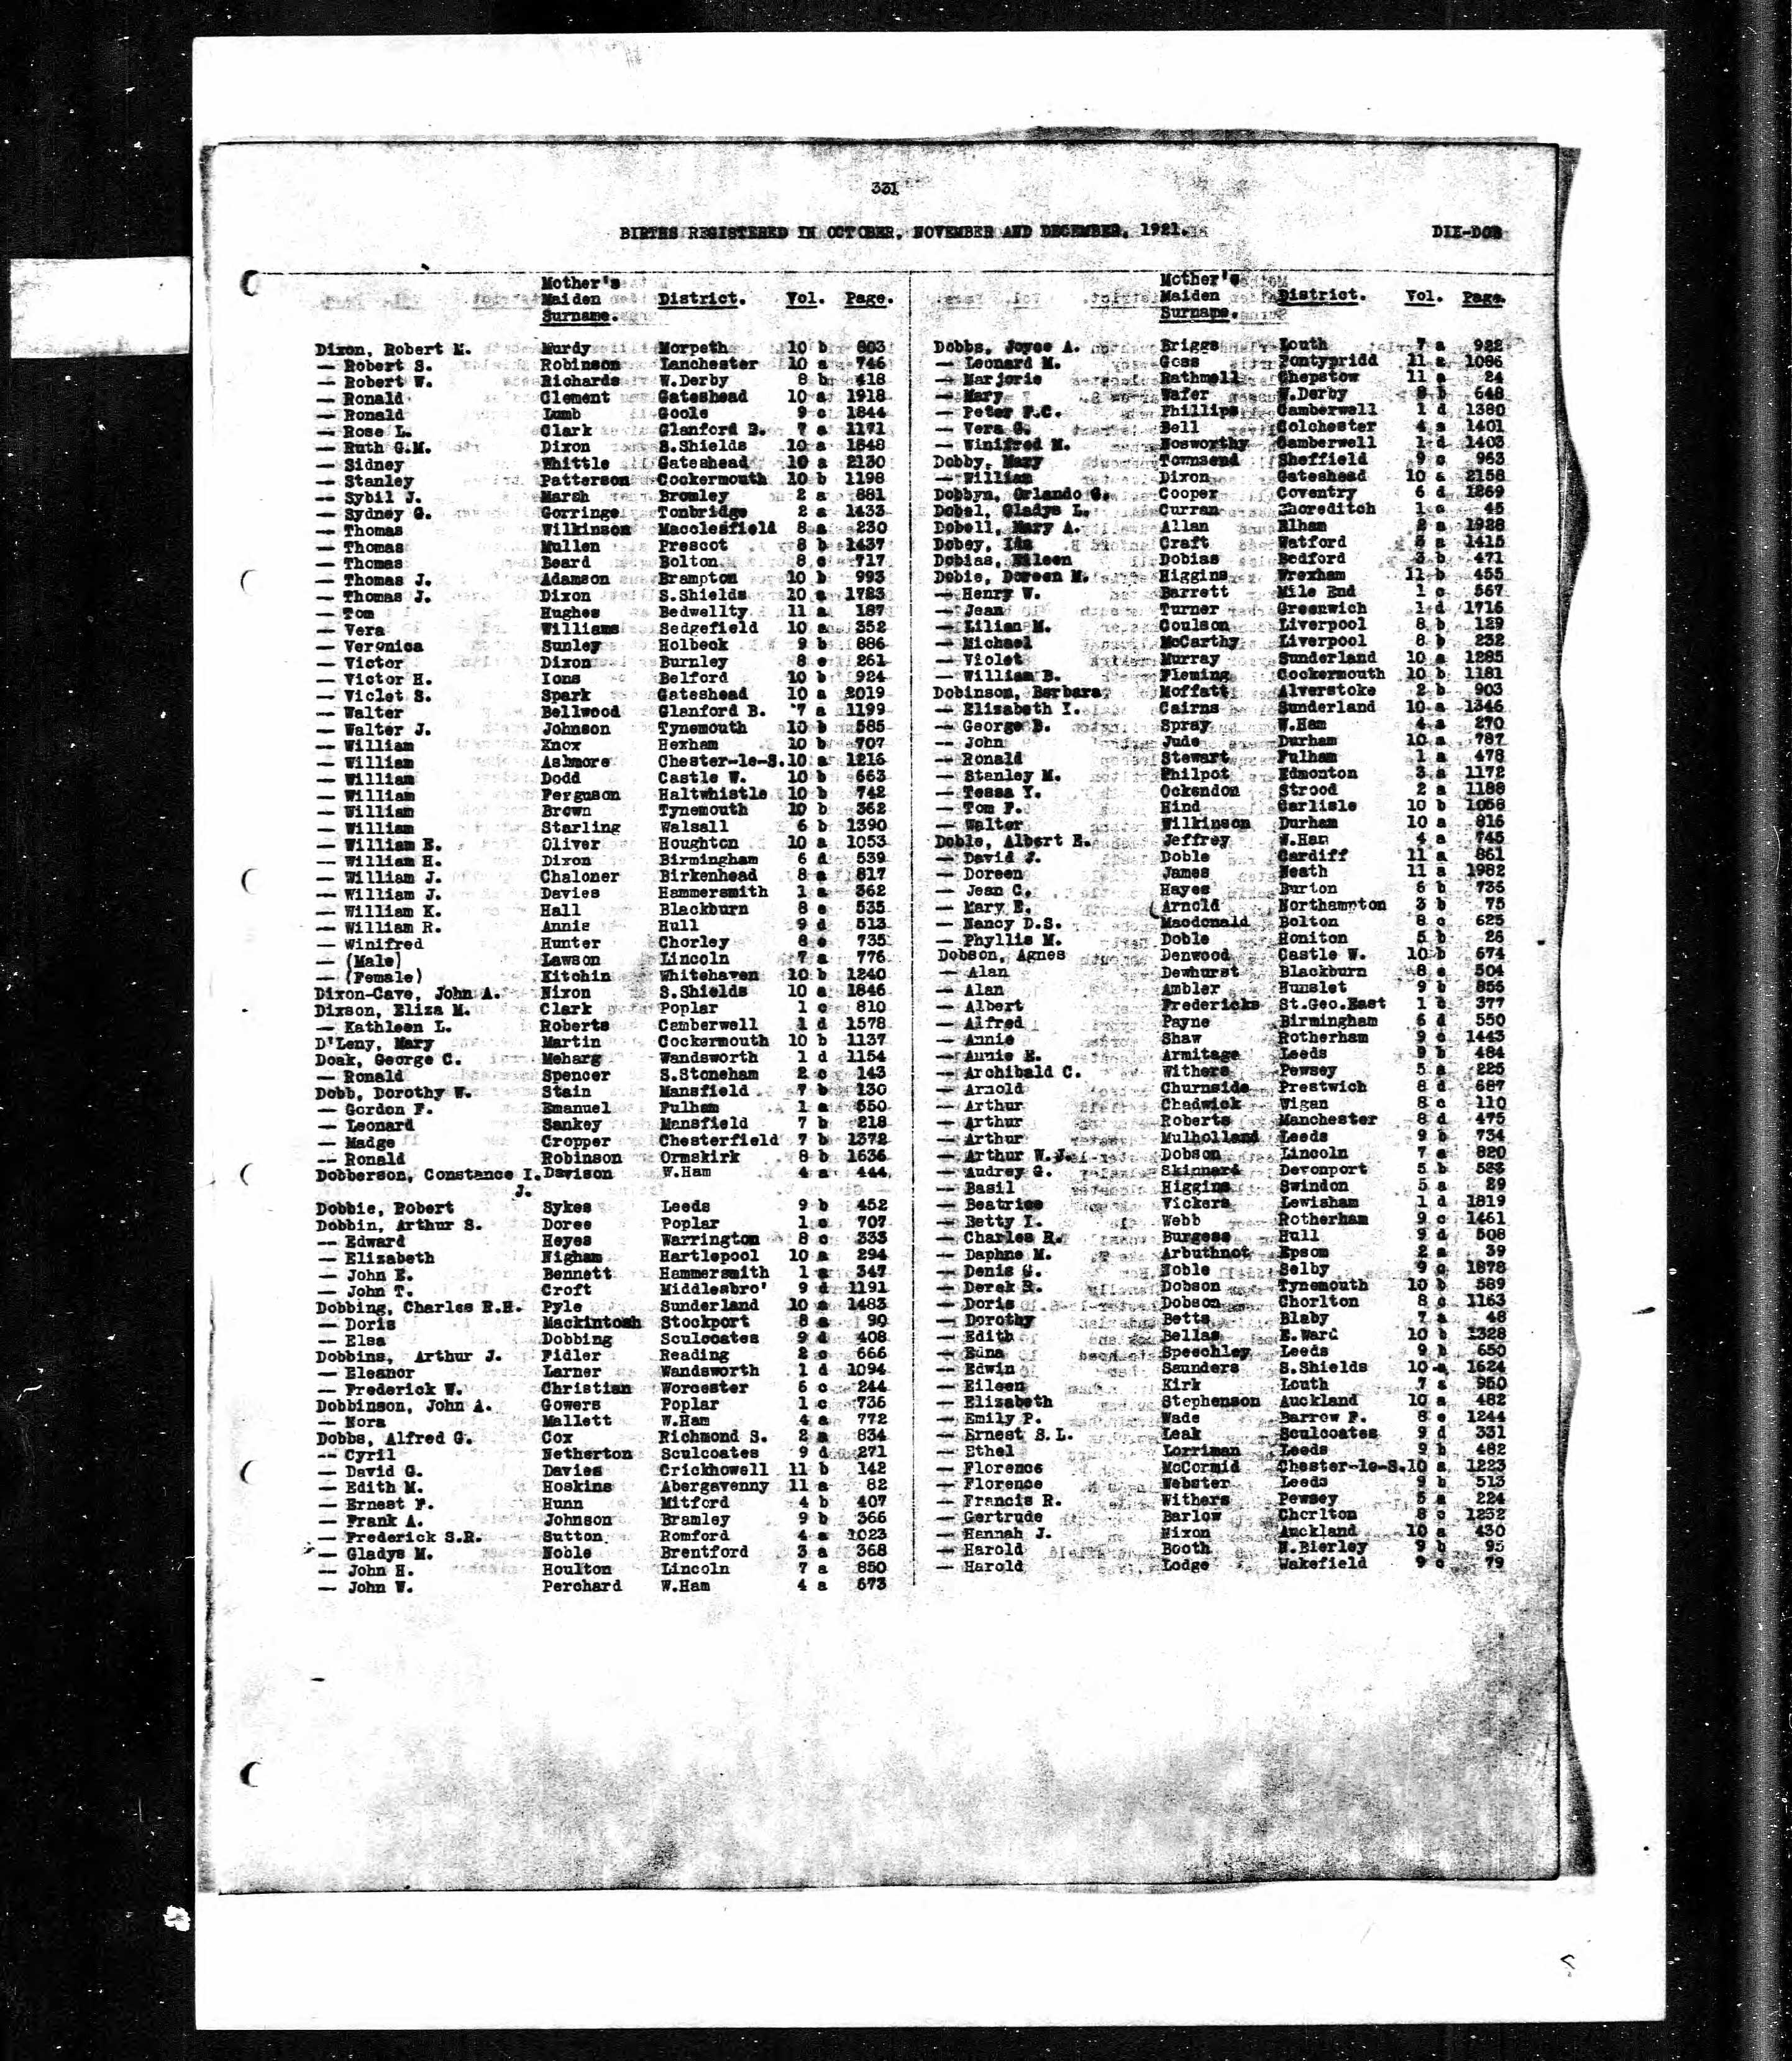 331
BIRTHS REGISTERED IN OCTOBER, NOVEMBER AND DECEMBER, 1921.
DIX-DOB
Mother's Maiden Surname. District. Vol. Page.
Dixon, Robert M. Murdy Morpeth 10 b 803
— Robert S. Robinson Lanchester 10 a 746
— Robert W. Richards W.Derby 8 b 418
— Ronald Clement Gateshead 10 a 1918
— Ronald Lumb Goole 9 c 1844
— Rose L. Clark Glanford B. 7 a 1171
— Ruth G.M. Dixon S.Shields 10 a 1848
— Sidney Whittle Gateshead 10 a 2130
— Stanley Patterson Cockermouth 10 b 1198
— Sybil J. Marsh Bromley 2 a 881
— Sydney G. Gorringe Tonbridge 2 a 1433
— Thomas Wilkinson Macclesfield 8 a 230
— Thomas Mullen Prescot 8 b 1437
— Thomas Beard Bolton 8 c 717
— Thomas J. Adamson Brampton 10 b 993
— Thomas J. Dixon S.Shields 10 a 1783
— Tom Hughes Bedwellty 11 a 187
— Vera Williams Sedgefield 10 a 352
— Veronica Sunley Holbeck 9 b 886
— Victor Dixon Burnley 8 e 261
— Victor H. Ions Belford 10 b 924
— Violet S. Spark Gateshead 10 a 2019
— Walter Bellwood Glanford B. 7 a 1199
— Walter J. Johnson Tynemouth 10 b 585
— William Knox Hexham 10 b 707
— William Ashmore Chester-le-S. 10 a 1216
— William Dodd Castle W. 10 b 663
— William Ferguson Haltwhistle 10 b 742
— William Brown Tynemouth 10 b 362
— William Starling Walsall 6 b 1390
— William E. Oliver Houghton 10 a 1053
— William H. Dixon Birmingham 6 d 539
— William J. Chaloner Birkenhead 8 a 817
— William J. Davies Hammersmith 1 a 362
— William K. Hall Blackburn 8 e 535
— William R. Annis Hull 9 d 513
— Winifred Hunter Chorley 8 e 735
— (Male) Lawson Lincoln 7 a 776
— (Female) Kitchin Whitehaven 10 b 1240
Dixon-Cave, John A. Nixon S.Shields 10 a 1846
Dixson, Eliza M. Clark Poplar 1 c 810
— Kathleen L. Roberts Camberwell 1 d 1578
D'Leny, Mary Martin Cockermouth 10 b 1137
Doak, George C. Meharg Wandsworth 1 d 1154
— Ronald Spencer S.Stoneham 2 c 143
Dobb, Dorothy W. Stain Mansfield 7 b 130
— Gordon F. Emanuel Fulham 1 a 550
— Leonard Sankey Mansfield 7 b 218
— Madge Cropper Chesterfield 7 b 1372
— Ronald Robinson Ormskirk 8 b 1636
Dobberson, Constance I. Davison W.Ham 4 a 444
J.
Dobbie, Robert Sykes Leeds 9 b 452
Dobbin, Arthur S. Doree Poplar 1 c 707
— Edward Heyes Warrington 8 c 333
— Elizabeth Nigham Hartlepool 10 a 294
— John E. Bennett Hammersmith 1 a 347
— John T. Croft Middlesbro' 9 d 1191
Dobbing, Charles R.H. Pyle Sunderland 10 a 1483
— Doris Mackintosh Stockport 8 a 90
— Elsa Dobbing Sculcoates 9 d 408
Dobbins, Arthur J. Fidler Reading 2 c 666
— Eleanor Larner Wandsworth 1 d 1094
— Frederick W. Christian Worcester 6 c 244
Dobbinson, John A. Gowers Poplar 1 c 736
— Nora Mallett W.Ham 4 a 772
Dobbs, Alfred G. Cox Richmond S. 2 a 834
— Cyril Netherton Sculcoates 9 d 271
— David G. Davies Crickhowell 11 b 142
— Edith M. Hoskins Abergavenny 11 a 82
— Ernest F. Hunn Mitford 4 b 407
— Frank A. Johnson Bramley 9 b 366
— Frederick S.R. Sutton Romford 4 a 1023
— Gladys M. Noble Brentford 3 a 368
— John H. Houlton Lincoln 7 a 850
— John W. Perchard W.Ham 4 a 673
Mother's Maiden Surname. District. Vol. Page.
Dobbs, Joyce A. Briggs Louth 7 a 922
— Leonard M. Goss Pontypridd 11 a 1086
— Marjorie Rathmell Chepstow 11 a 24
— Mary Wafer W.Derby 8 b 648
— Peter F.C. Phillips Camberwell 1 d 1380
— Vera G. Bell Colchester 4 a 1401
— Winifred M. Nosworthy Camberwell 1 d 1403
Dobby, Mary Townsend Sheffield 9 c 963
— William Dixon Gateshead 10 a 2158
Dobbyn, Orlando G. Cooper Coventry 6 d 1269
Dobel, Gladys L. Curran Shoreditch 1 c 45
Dobell, Mary A. Allan Elham 2 a 1928
Dobey, Ida Craft Watford 3 a 1415
Dobias, Eileen Dobias Bedford 3 b 471
Dobie, Doreen M. Higgins Wrexham 11 b 455
— Henry W. Barrett Mile End 1 c 567
— Jean Turner Greenwich 1 d 1716
— Lilian M. Coulson Liverpool 8 b 129
— Michael McCarthy Liverpool 8 b 232
— Violet Murray Sunderland 10 a 1285
— William B. Fleming Cockermouth 10 b 1181
Dobinson, Barbara Moffatt Alverstoke 2 b 903
— Elizabeth I. Cairns Sunderland 10 a 1346
— George B. Spray W.Ham 4 a 270
— John Jude Durham 10 a 787
— Ronald Stewart Fulham 1 a 478
— Stanley M. Philpot Edmonton 3 a 1172
— Tessa Y. Ockendon Strood 2 a 1188
— Tom F. Hind Carlisle 10 b 1058
— Walter Wilkinson Durham 10 a 816
Doble, Albert E. Jeffrey W.Ham 4 a 745
— David J. Doble Cardiff 11 a 861
— Doreen James Neath 11 a 1982
— Jean C. Hayes Burton 6 b 736
— Mary E. Arnold Northampton 3 b 75
— Nancy D.S. Macdonald Bolton 8 c 625
— Phyllis M. Doble Honiton 5 b 26
Dobson, Agnes Denwood Castle W. 10 b 674
— Alan Dewhurst Blackburn 8 e 504
— Alan Ambler Hunslet 9 b 855
— Albert Fredericks St.Geo.East 1 c 377
— Alfred Payne Birmingham 6 d 550
— Annie Shaw Rotherham 9 c 1443
— Annie E. Armitage Leeds 9 b 484
— Archibald C. Withers Pewsey 5 a 225
— Arnold Churnside Prestwich 8 d 687
— Arthur Chadwick Wigan 8 c 110
— Arthur Roberts Manchester 8 d 475
— Arthur Mulholland Leeds 9 b 734
— Arthur W.J. Dobson Lincoln 7 a 820
— Audrey G. Skinnard Devonport 5 b 583
— Basil Higgins Swindon 5 a 29
— Beatrice Vickers Lewisham 1 d 1819
— Betty I. Webb Rotherham 9 c 1461
— Charles R. Burgess Hull 9 d 508
— Daphne M. Arbuthnot Epsom 2 a 39
— Denis G. Noble Selby 9 c 1878
— Derek R. Dobson Tynemouth 10 b 589
— Doris Dobson Chorlton 8 c 1163
— Dorothy Betts Blaby 7 a 48
— Edith Bellas E.Ward 10 b 1328
— Edna Speechley Leeds 9 b 650
— Edwin Saunders S.Shields 10 a 1624
— Eileen Kirk Louth 7 a 950
— Elizabeth Stephenson Auckland 10 a 482
— Emily P. Wade Barrow F. 8 e 1244
— Ernest S.L. Leak Sculcoates 9 d 331
— Ethel Lorriman Leeds 9 b 482
— Florence McCormid Chester-le-S. 10 a 1223
— Florence Webster Leeds 9 b 513
— Francis R. Withers Pewsey 5 a 224
— Gertrude Barlow Chorlton 8 c 1232
— Hannah J. Nixon Auckland 10 a 430
— Harold Booth N.Bierley 9 b 95
— Harold Lodge Wakefield 9 c 79